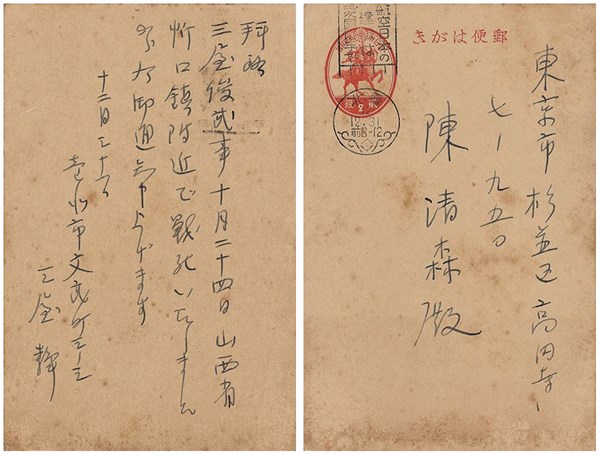 拝啓
三屋俊武事十月二十四日山西省
忻口鎮附近で戦死いたしました
御通知申上げます
十二月三十一日
臺北市文武町三ノ三
三屋静
郵便はがき
12.31
前8-12
東京市杉並区高円寺
七ノ九五〇
陳清森殿